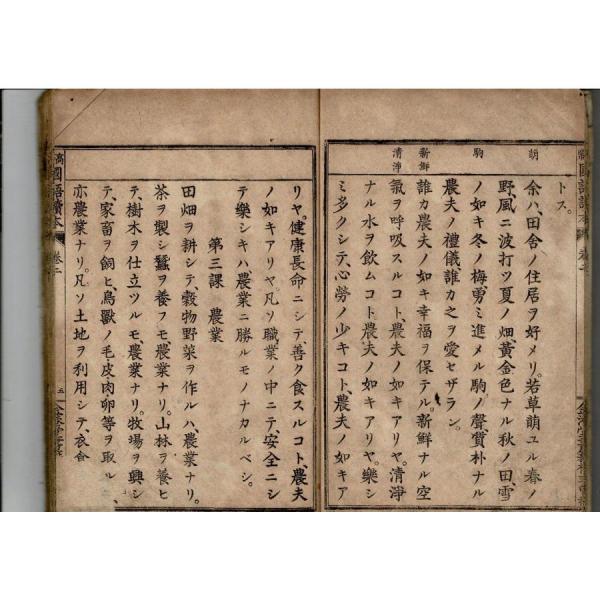 トス。
余ハ、田舎ノ住居ヲ好メリ。若草萌ユル春ノ
野、風ニ波打ツ夏ノ畑、黄金色ナル秋ノ田、雪
ノ如キ冬ノ梅、勇ミ進メル駒ノ聲、質朴ナル
農夫ノ禮儀、誰カ之ヲ愛セザラン。
誰カ農夫ノ如キ幸福ヲ保テル。新鮮ナル空
氣ヲ呼吸スルコト、農夫ノ如キアリヤ。清淨
ナル水ヲ飲ムコト、農夫ノ如キアリヤ。樂シ
ミ多クシテ、心勞ノ少キコト、農夫ノ如キア
萌
駒
新鮮
清淨
リヤ。健康長命ニシテ、善ク食スルコト、農夫
ノ如キアリヤ。凡ソ職業ノ中ニテ、安全ニシ
テ樂シキハ、農業ニ勝ルモノナカルベシ。
第三課 農業
田畑ヲ耕シテ、穀物野菜ヲ作ルハ、農業ナリ。
茶ヲ製シ蠶ヲ養フモ、農業ナリ。山林ヲ養ヒ
テ、樹木ヲ仕立ツルモ、農業ナリ。牧場ヲ興シ
テ、家畜ヲ飼ヒ、鳥獸ノ毛、皮、肉、卵等ヲ取ル
亦農業ナリ。凡ソ土地ヲ利用シテ、衣食
國語讀本 卷二
五